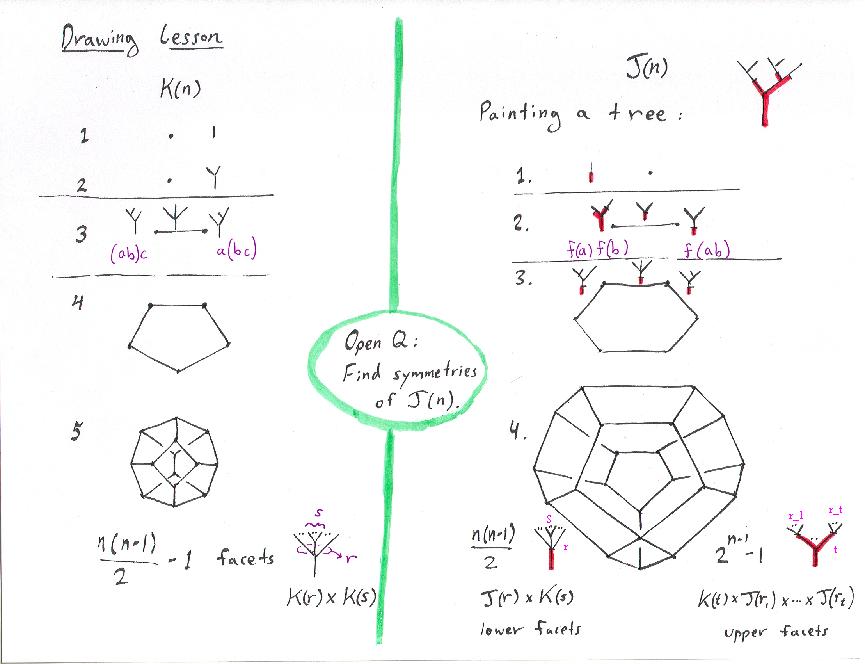 Drawing Lesson
K(n)
1
2
3
(ab)c
a(bc)
4
5
n(n-1)/2 - 1 facets
s
r
K(r) x K(s)
Open Q:
Find symmetries
of J(n).
J(n)
Painting a tree:
1.
2.
f(a) f(b)
f(ab)
3.
4.
n(n-1)/2
s
r
J(r) x K(s)
lower facets
2^{n-1} - 1
r_1
r_t
t
K(t) x J(r_1) x ... x J(r_t)
upper facets